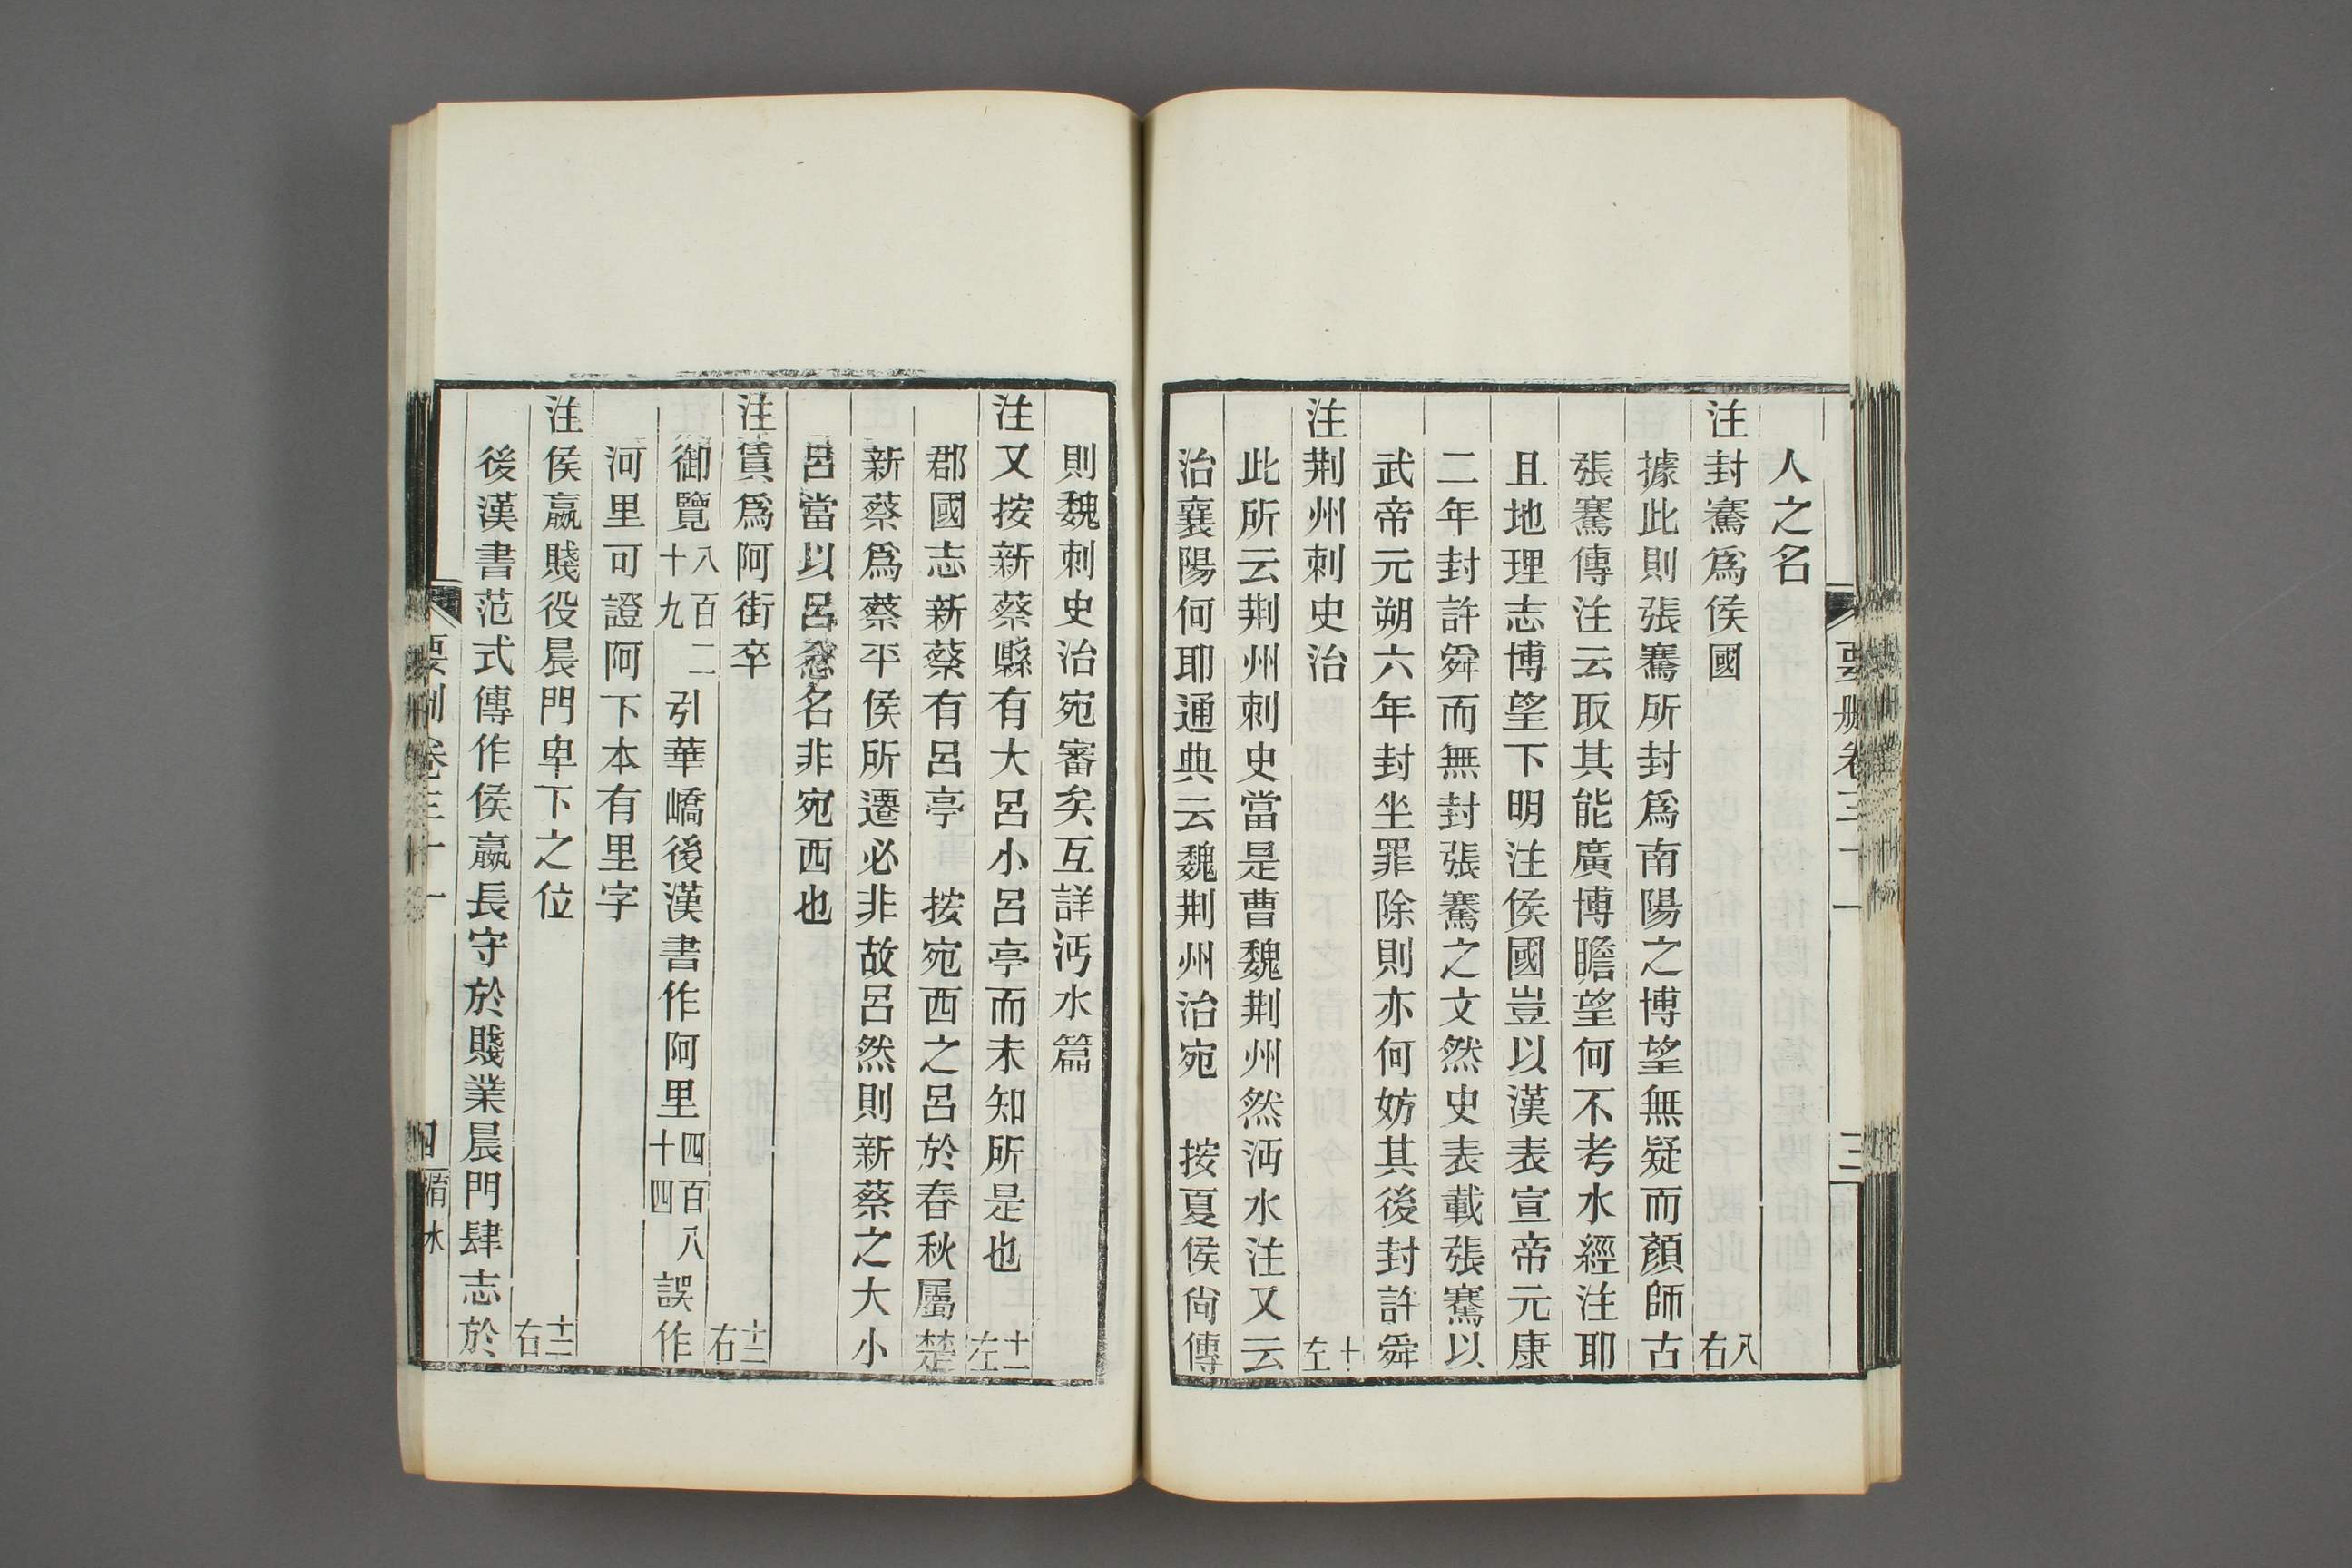 人之名
注封騫爲侯國 八右
據此則張騫所封爲南陽之博望無疑而顏師古
張騫傳注云取其能廣博瞻望何不考水經注耶
且地理志博望下明注侯國豈以漢表宣帝元康
二年封許舜而無封張騫之文然史表載張騫以
武帝元朔六年封坐罪除則亦何妨其後封許舜
注荆州刺史治 十左
此所云荆州刺史當是曹魏荆州然沔水注又云
治襄陽何耶通典云魏荆州治宛 按夏侯尙傳
要刪卷三十一 三
則魏刺史治宛審矣互詳沔水篇
注又按新蔡縣有大呂小呂亭而未知所是也 十一左
郡國志新蔡有呂亭 按宛西之呂於春秋屬楚
新蔡爲蔡平侯所遷必非故呂然則新蔡之大小
呂當以呂忿名非宛西也
注賃爲阿街卒 十二右
御覽八百二十九引華嶠後漢書作阿里四百八十四誤作
河里可證阿下本有里字
注侯嬴賤役晨門卑下之位 十二右
後漢書范式傳作侯嬴長守於賤業晨門肆志於
要刪卷三十一 四 淯水